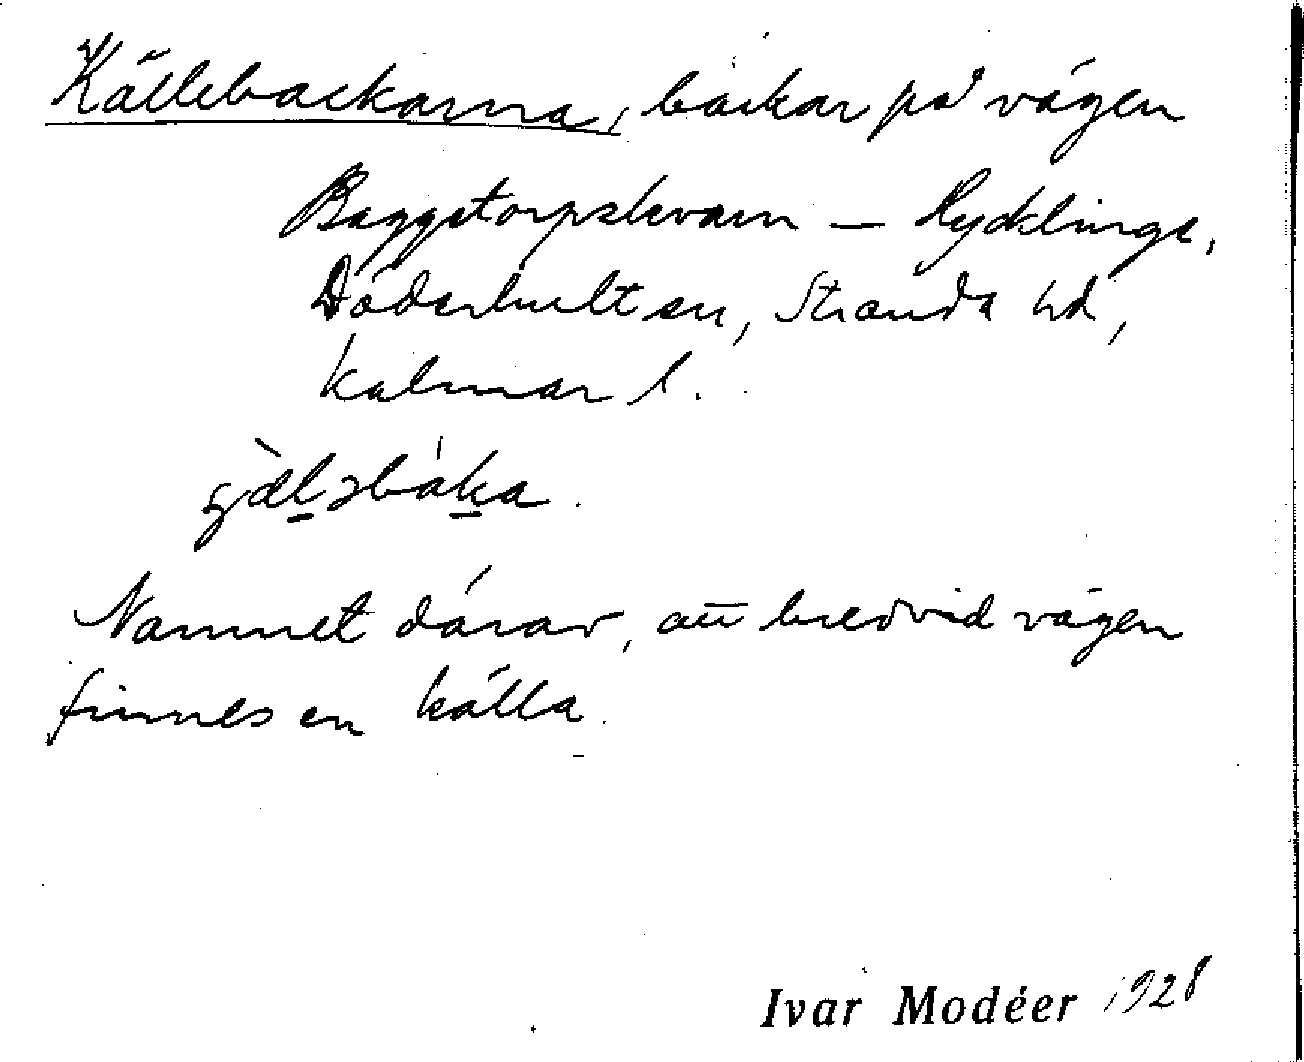 Källebackarna, backar på vägen
Baggetorpskvarn – Rycklinge,
Döderhultsn, Stranda hd,
Kalmar l.
Namnet därav, att bredvid vägen
finnes en källa.
Ivar Modéer 1928